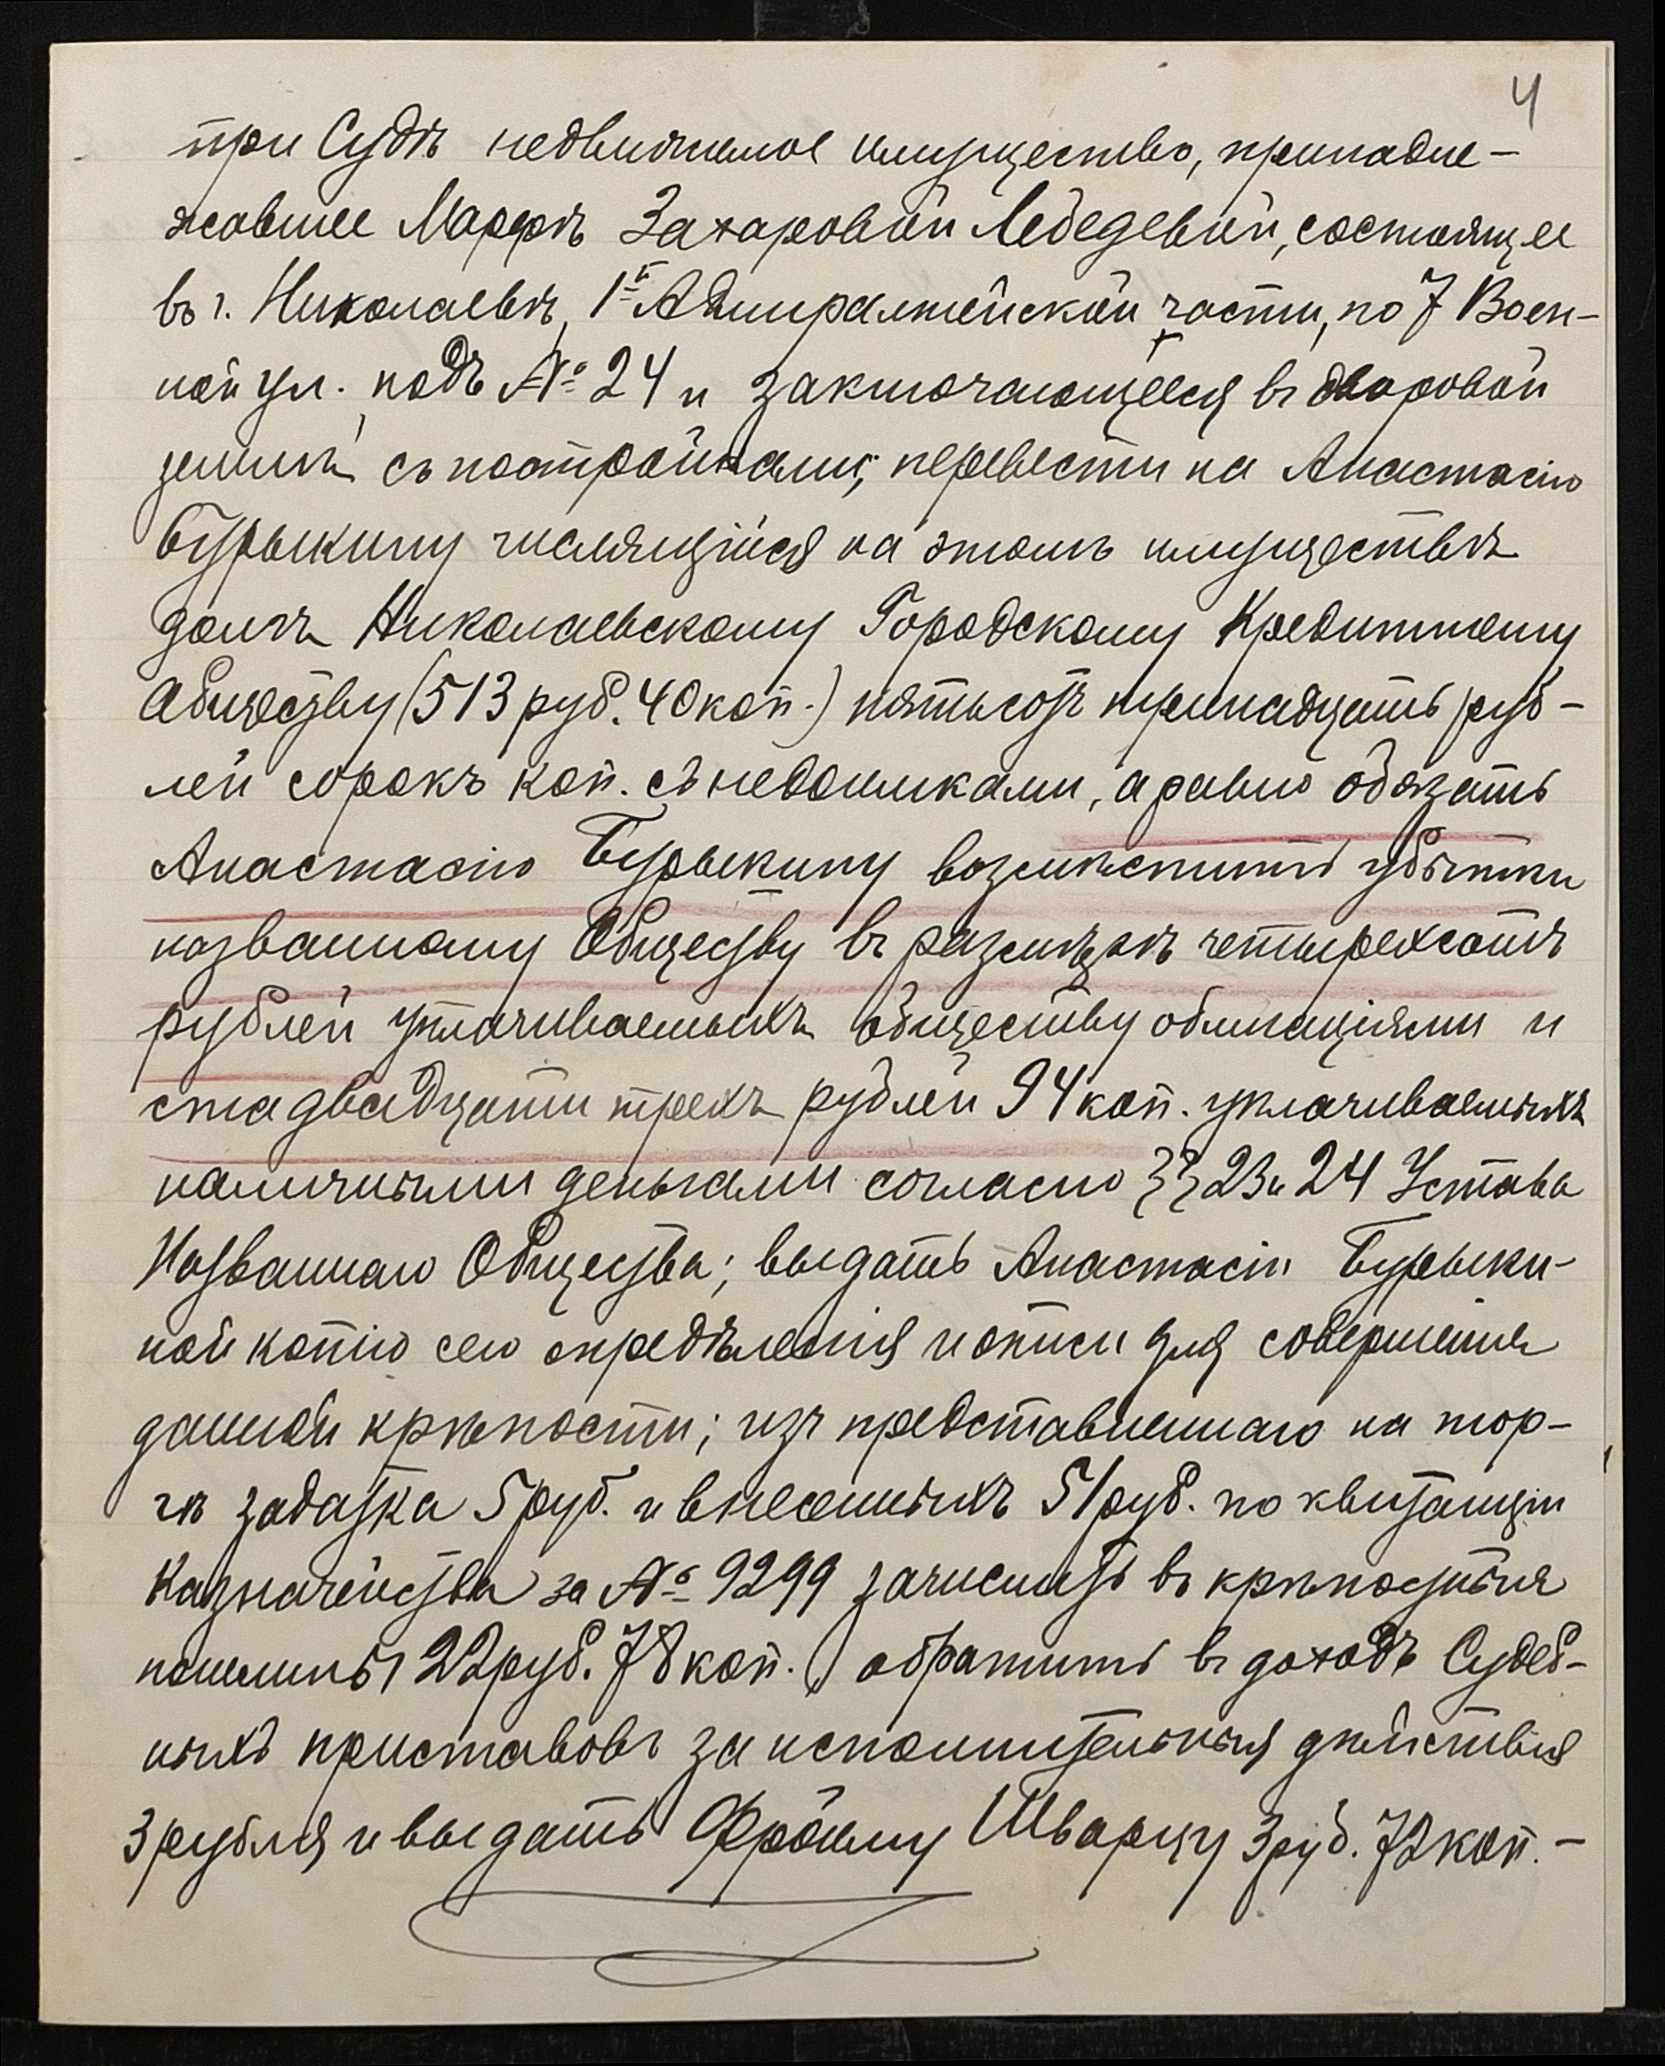 4
при Судѣ недвижимое имущество, принадле-
жавшее Марфѣ Захаровой Лебедевой, состоящее
въ г. Николаевѣ, 1й Адмиралтейской части, по 7 Воен-
ной ул. подъ № 24 и заключающееся въ дворовой
землѣ съ постройками; перевести на Анастасію
Бурыкину числящійся на этомъ имуществѣ
долгъ Николаевскому Городскому Кредитному
Обществу (513 руб. 40 коп.) пятьсотъ тринадцать руб-
лей сорокъ коп. съ недоимками, а равно обязать
Анастасію Бурыкину возмѣстить убытки
названному Обществу въ размѣрѣ четырехсотъ
рублей уплачиваемыхъ обществу облигаціями и
ста двадцати трехъ рублей 94 коп. уплачиваемыхъ
наличными деньгами согласно §§ 23 и 24 Устава
Названнаго Общества; выдать Анастасіи Бурыки-
ной копію сего опредѣленія и описи для совершенія
данной крѣпости; изъ представленнаго на тор-
гѣ задатка 5 руб. и внесенныхъ 51 руб. по квитанціи
Казначейства за № 9299 зачислить въ крѣпостныя
пошлины 22 руб. 78 коп., обратить въ доходъ Судеб-
ныхъ приставовъ за исполнительныя дѣйствія
3 рубля и выдать Фроиму Шварцу 3 руб. 72 коп. -